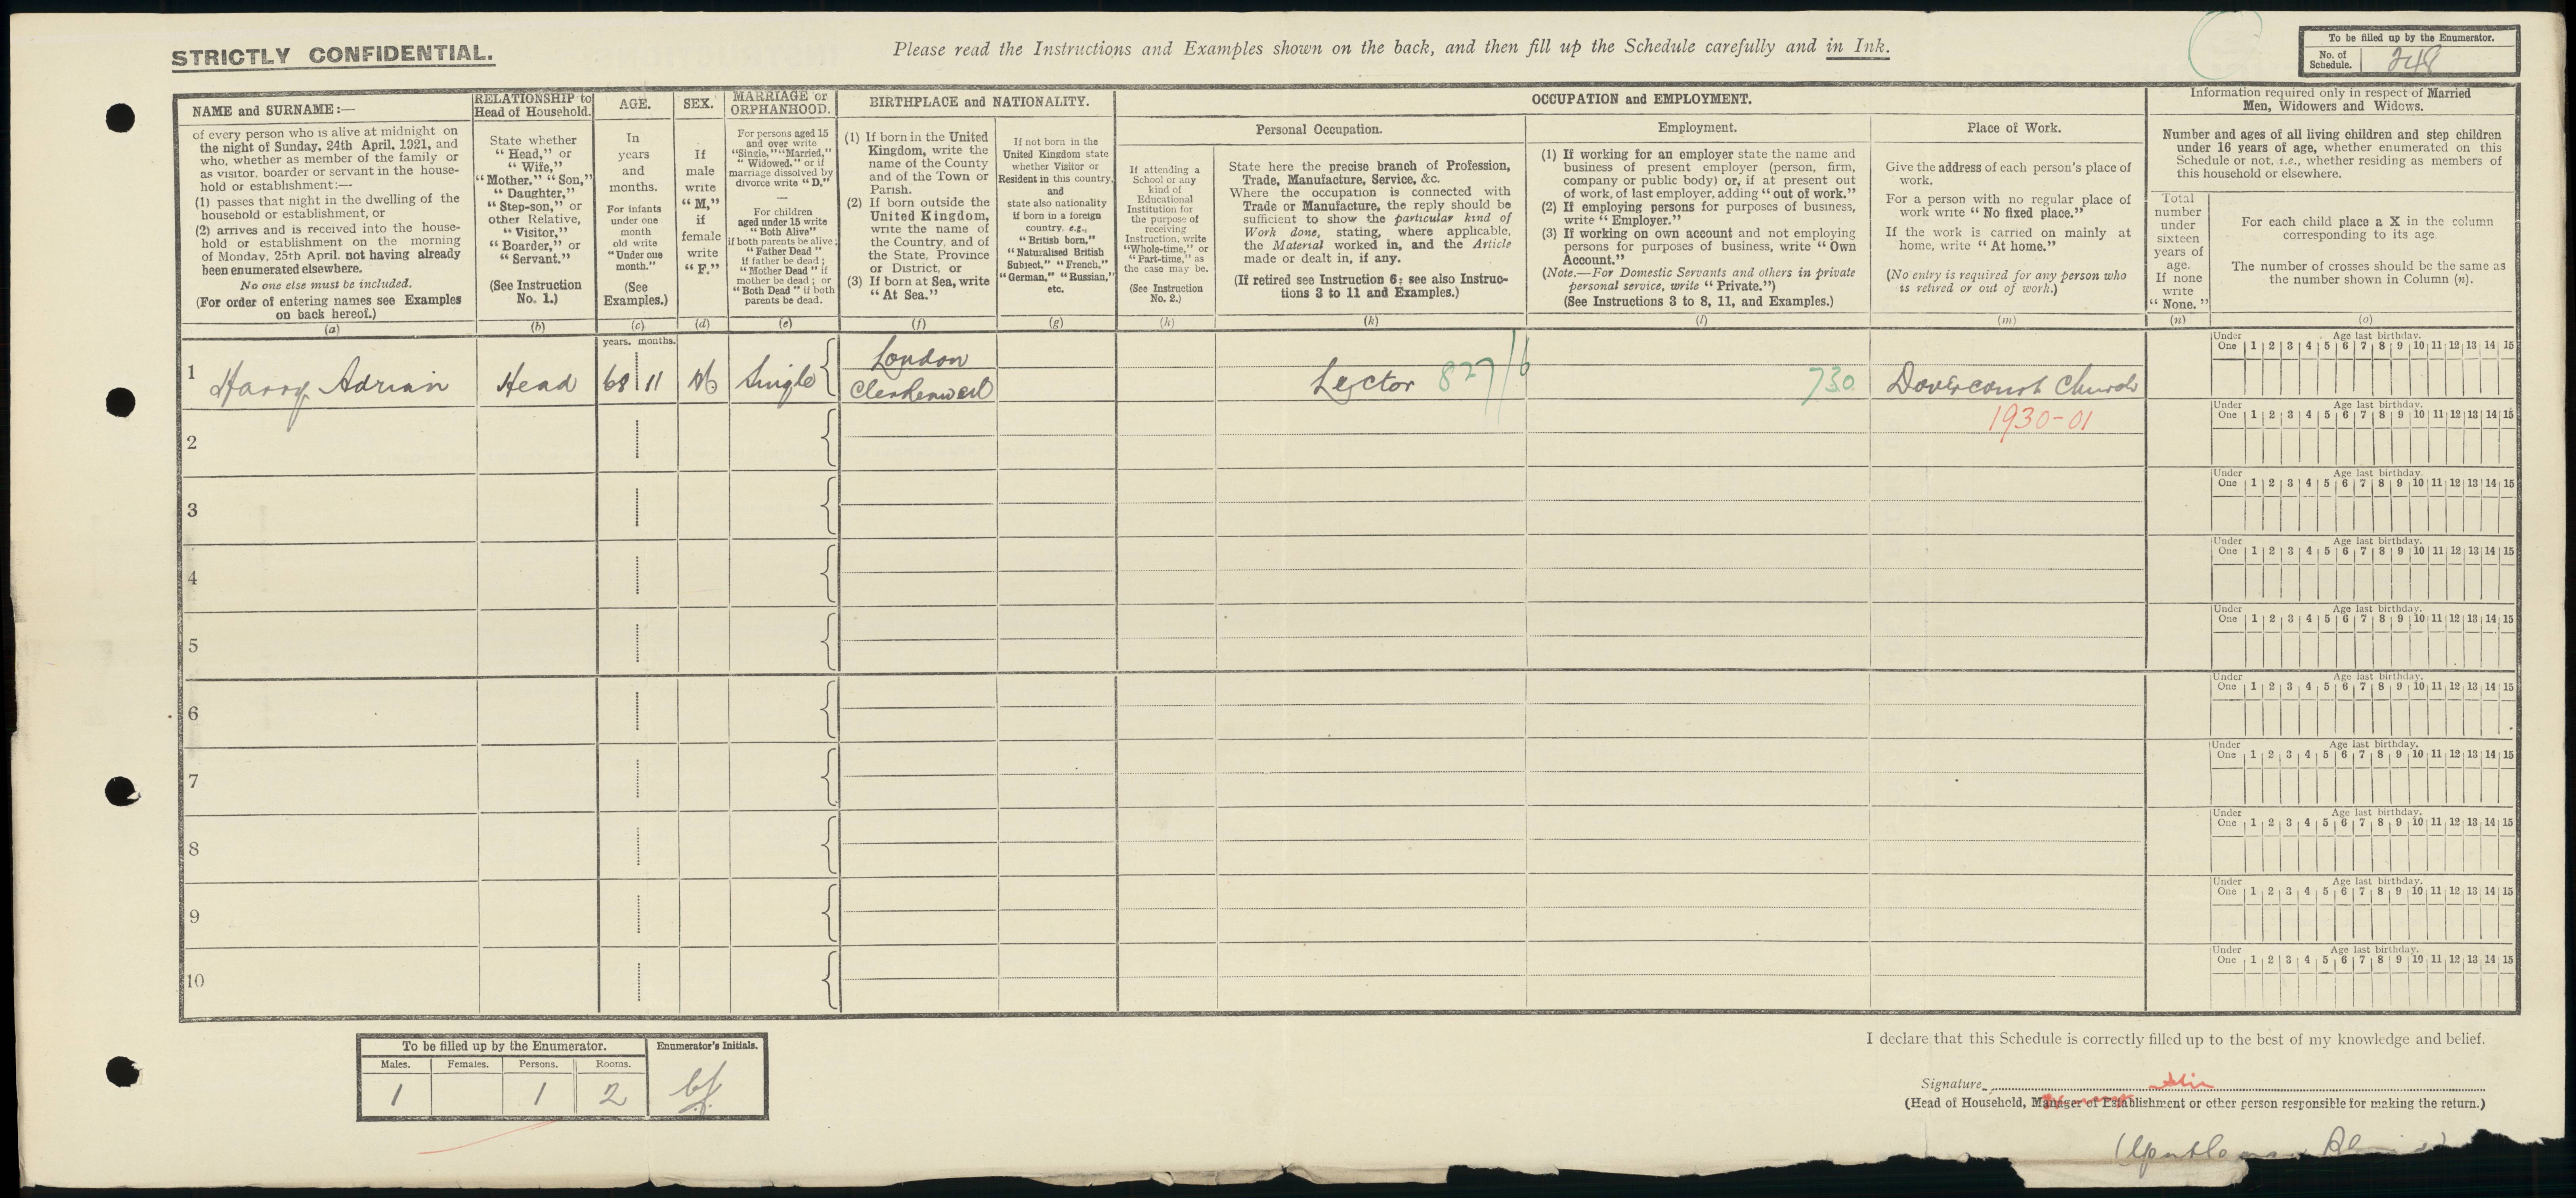 STRICTLY CONFIDENTIAL.
Please read the Instructions and Examples shown on the back, and then fill up the Schedule carefully and in Ink.
To be filled up by the Enumerator.
No. of Schedule. 248
NAME and SURNAME:—
of every person who is alive at midnight on
the night of Sunday, 24th April, 1921, and
who, whether as member of the family or
as visitor, boarder or servant in the house-
hold or establishment:—
(1) passes that night in the dwelling of the
household or establishment, or
(2) arrives and is received into the house-
hold or establishment on the morning
of Monday, 25th April, not having already
been enumerated elsewhere.
No one else must be included.
(For order of entering names see Examples
on back hereof.)
(a)
RELATIONSHIP to
Head of Household.
State whether
"Head," or
"Wife,"
"Mother," "Son,"
"Daughter,"
"Step-son," or
other Relative,
"Visitor,"
"Boarder," or
"Servant."
(See Instruction
No. 1.)
(b)
AGE.
In
years
and
months.
For infants
under one
month
old write
"Under one
month."
(See
Examples.)
(c)
SEX.
If
male
write
"M,"
if
female
write
"F."
(d)
MARRIAGE or
ORPHANHOOD.
For persons aged 15
and over write
"Single," "Married,"
"Widowed," or if
marriage dissolved by
divorce write "D."
—
For children
aged under 15 write
"Both Alive"
if both parents be alive;
"Father Dead"
if father be dead;
"Mother Dead" if
mother be dead; or
"Both Dead" if both
parents be dead.
(e)
BIRTHPLACE and NATIONALITY.
(1) If born in the United
Kingdom, write the
name of the County
and of the Town or
Parish.
(2) If born outside the
United Kingdom,
write the name of
the Country, and of
the State, Province
or District, or
(3) If born at Sea, write
"At Sea."
(f)
If not born in the
United Kingdom state
whether Visitor or
Resident in this country,
and
state also nationality
if born in a foreign
country, e.g.,
"British born,"
"Naturalised British
Subject," "French,"
"German," "Russian,"
etc.
(g)
OCCUPATION and EMPLOYMENT.
Personal Occupation.
If attending a
School or any
kind of
Educational
Institution for
the purpose of
receiving
Instruction, write
"Whole-time," or
"Part-time," as
the case may be.
(See Instruction
No. 2.)
(h)
State here the precise branch of Profession,
Trade, Manufacture, Service, &c.
Where the occupation is connected with
Trade or Manufacture, the reply should be
sufficient to show the particular kind of
Work done, stating, where applicable,
the Material worked in, and the Article
made or dealt in, if any.
(If retired see Instruction 6; see also Instruc-
tions 3 to 11 and Examples.)
(k)
Employment.
(1) If working for an employer state the name and
business of present employer (person, firm,
company or public body) or, if at present out
of work, of last employer, adding "out of work."
(2) If employing persons for purposes of business,
write "Employer."
(3) If working on own account and not employing
persons for purposes of business, write "Own
Account."
(Note.—For Domestic Servants and others in private
personal service, write "Private.")
(See Instructions 3 to 8, 11, and Examples.)
(l)
Place of Work.
Give the address of each person's place of
work.
For a person with no regular place of
work write "No fixed place."
If the work is carried on mainly at
home, write "At home."
(No entry is required for any person who
is retired or out of work.)
(m)
Information required only in respect of Married
Men, Widowers and Widows.
Number and ages of all living children and step children
under 16 years of age, whether enumerated on this
Schedule or not, i.e., whether residing as members of
this household or elsewhere.
Total
number
under
sixteen
years of
age.
If none
write
"None."
(n)
For each child place a X in the column
corresponding to its age.
The number of crosses should be the same as
the number shown in Column (n).
(o)
years. months.
1 Harry Adrian Head 68 11 M Single London
Clerkenwell
Lector 827/6 730 Dovercourt Church
1930-01
Under One Age last birthday. 1 2 3 4 5 6 7 8 9 10 11 12 13 14 15
2
Under One Age last birthday. 1 2 3 4 5 6 7 8 9 10 11 12 13 14 15
3
Under One Age last birthday. 1 2 3 4 5 6 7 8 9 10 11 12 13 14 15
4
Under One Age last birthday. 1 2 3 4 5 6 7 8 9 10 11 12 13 14 15
5
Under One Age last birthday. 1 2 3 4 5 6 7 8 9 10 11 12 13 14 15
6
Under One Age last birthday. 1 2 3 4 5 6 7 8 9 10 11 12 13 14 15
7
Under One Age last birthday. 1 2 3 4 5 6 7 8 9 10 11 12 13 14 15
8
Under One Age last birthday. 1 2 3 4 5 6 7 8 9 10 11 12 13 14 15
9
Under One Age last birthday. 1 2 3 4 5 6 7 8 9 10 11 12 13 14 15
10
Under One Age last birthday. 1 2 3 4 5 6 7 8 9 10 11 12 13 14 15
To be filled up by the Enumerator.
Enumerator's Initials.
Males. Females. Persons. Rooms.
1 1 2
I declare that this Schedule is correctly filled up to the best of my knowledge and belief.
Signature
(Head of Household, Manager of Establishment or other person responsible for making the return.)